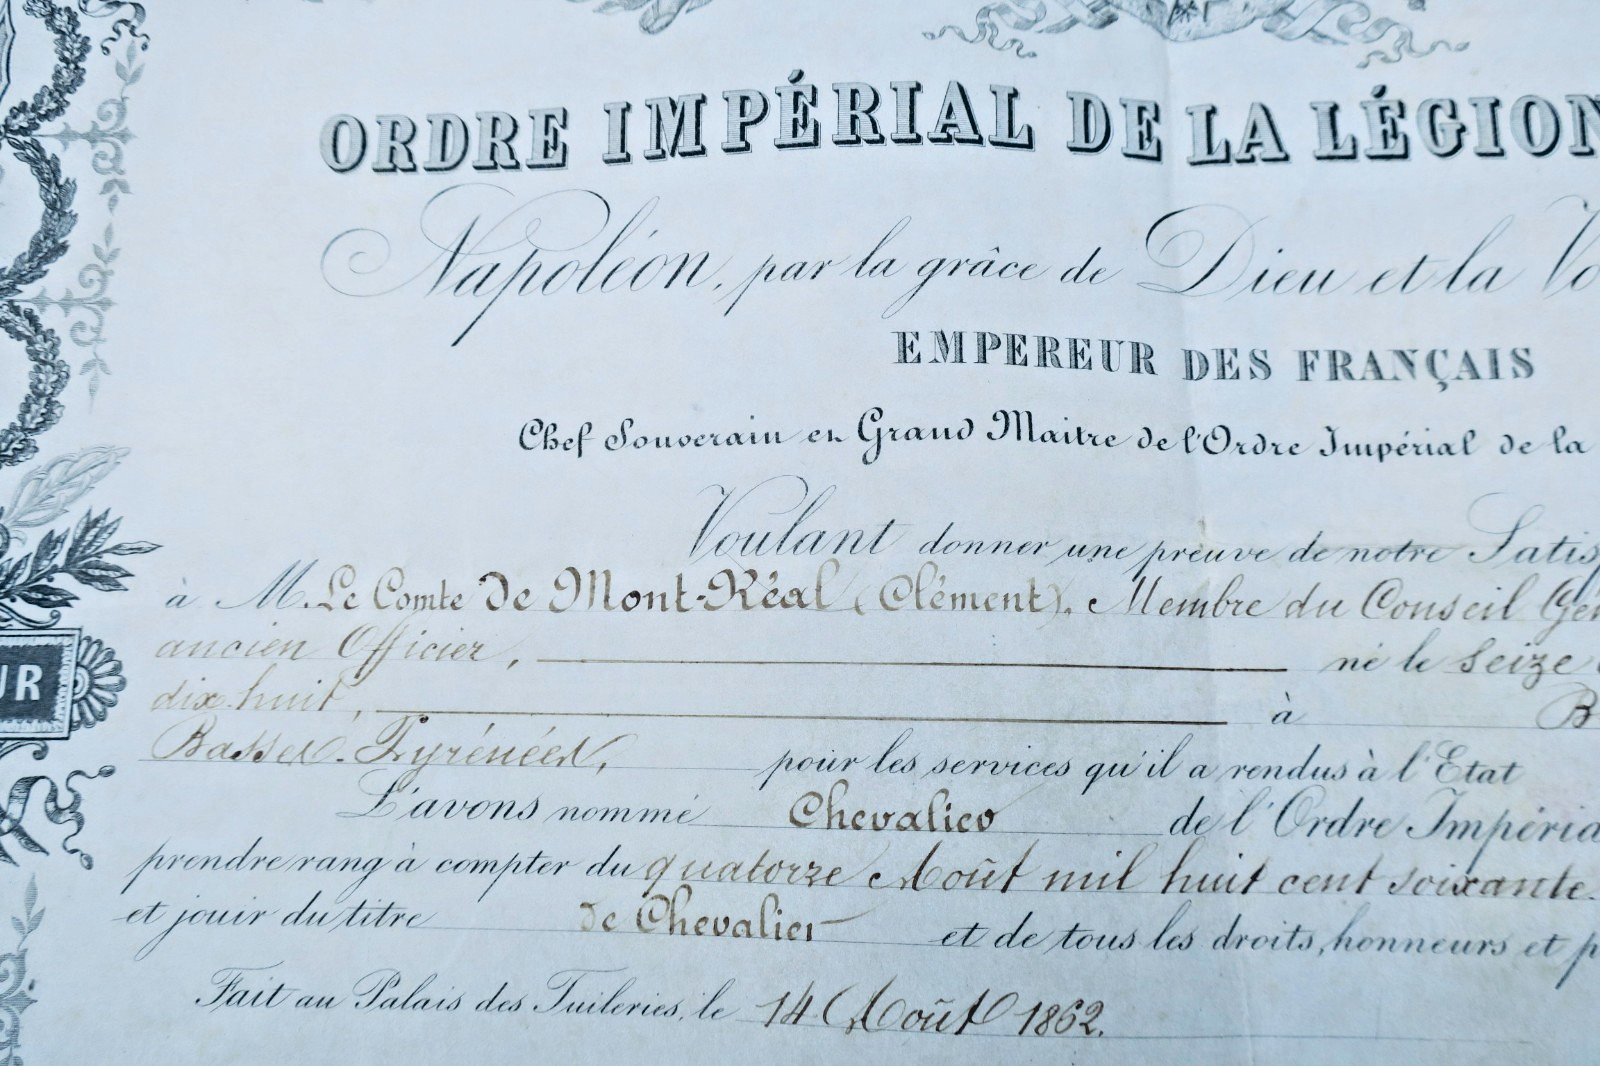 ORDRE IMPÉRIAL DE LA LÉGION
Napoléon, par la grâce de Dieu et la Vo
EMPEREUR DES FRANÇAIS
Chef Souverain et Grand Maître de l'Ordre Impérial de la
Voulant donner une preuve de notre Satis
à M. Le Comte de Mont-Réal (Clément), Membre du Conseil Gén
ancien Officier, né le seize
UR
dix-huit, à B
Basses-Pyrénées, pour les services qu'il a rendus à l'Etat
L'avons nommé Chevalier de l'Ordre Impéria
prendre rang à compter du quatorze Août mil huit cent soixante
et jouir du titre de Chevalier et de tous les droits, honneurs et p
Fait au Palais des Tuileries, le 14 Août 1862.